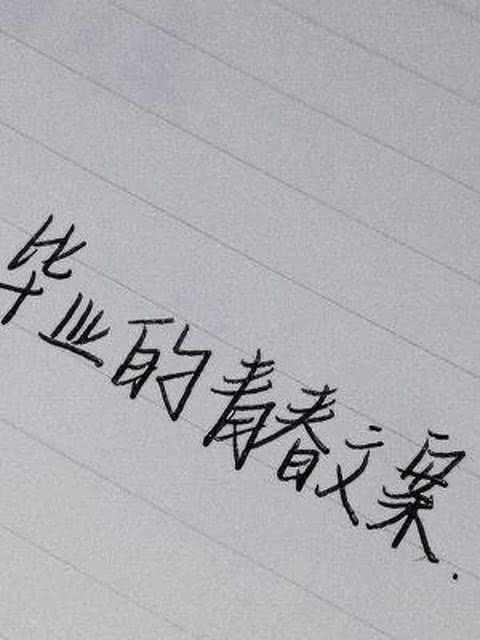 毕业的青春文案.